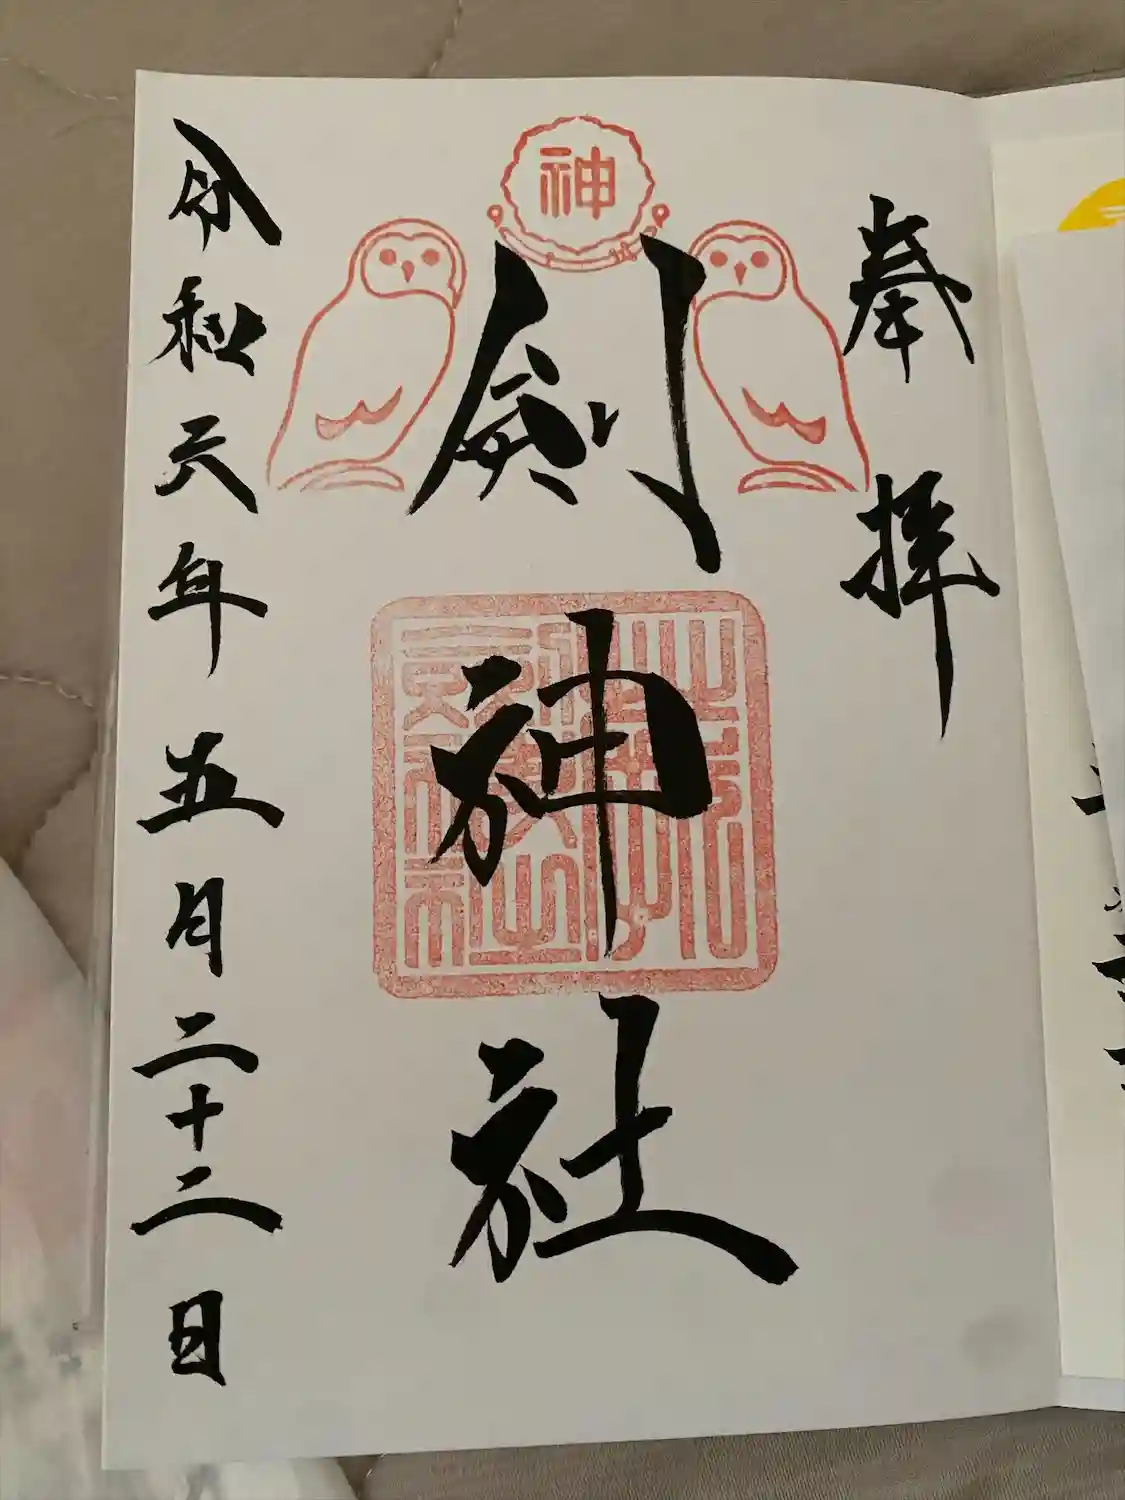 奉拝
神
剣神社
令和元年五月二十二日